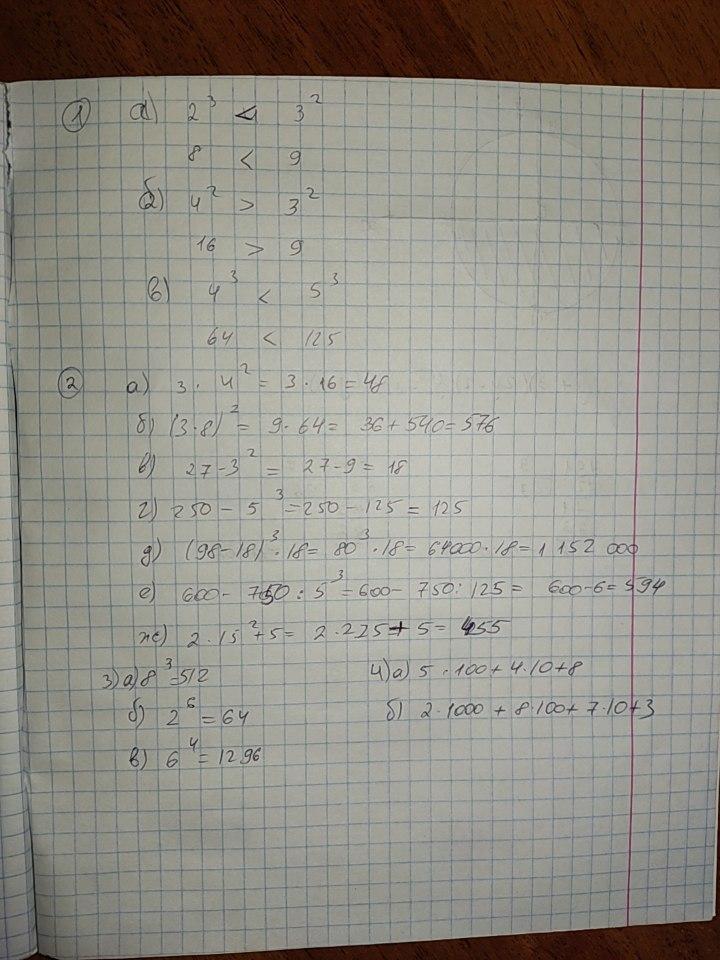 1 а) 2³ < 3²
8 < 9
б) 4² > 3²
16 > 9
в) 4³ < 5³
64 < 125
2 а) 3 · 4² = 3 · 16 = 48
б) (3·8)² = 9·64 = 36 + 540 = 576
в) 27 - 3² = 27 - 9 = 18
г) 250 - 5³ = 250 - 125 = 125
д) (98-18)³ · 18 = 80³ · 18 = 64000 · 18 = 1 152 000
е) 600 - 750 : 5³ = 600 - 750 : 125 = 600 - 6 = 594
ж) 2 · 15² + 5 = 2 · 225 + 5 = 455
3) а) 8³ = 512
б) 2⁶ = 64
в) 6⁴ = 1296
4) а) 5 · 100 + 4 · 10 + 8
б) 2 · 1000 + 8 · 100 + 7 · 10 + 3